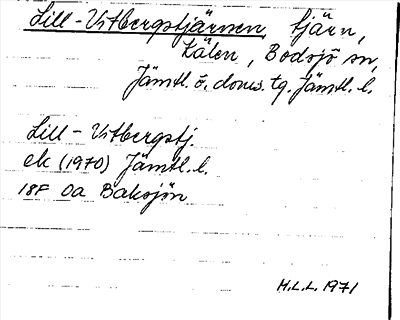 Lill-Vitbergstjärnen, tjärn,
Kälen, Bodsjö sn,
Jämtl. ö. doms. tg. Jämtl. l.
Lill-Vitbergstj.
ek (1970) Jämtl. l.
18F 0a Baksjön
H.L.L. 1971